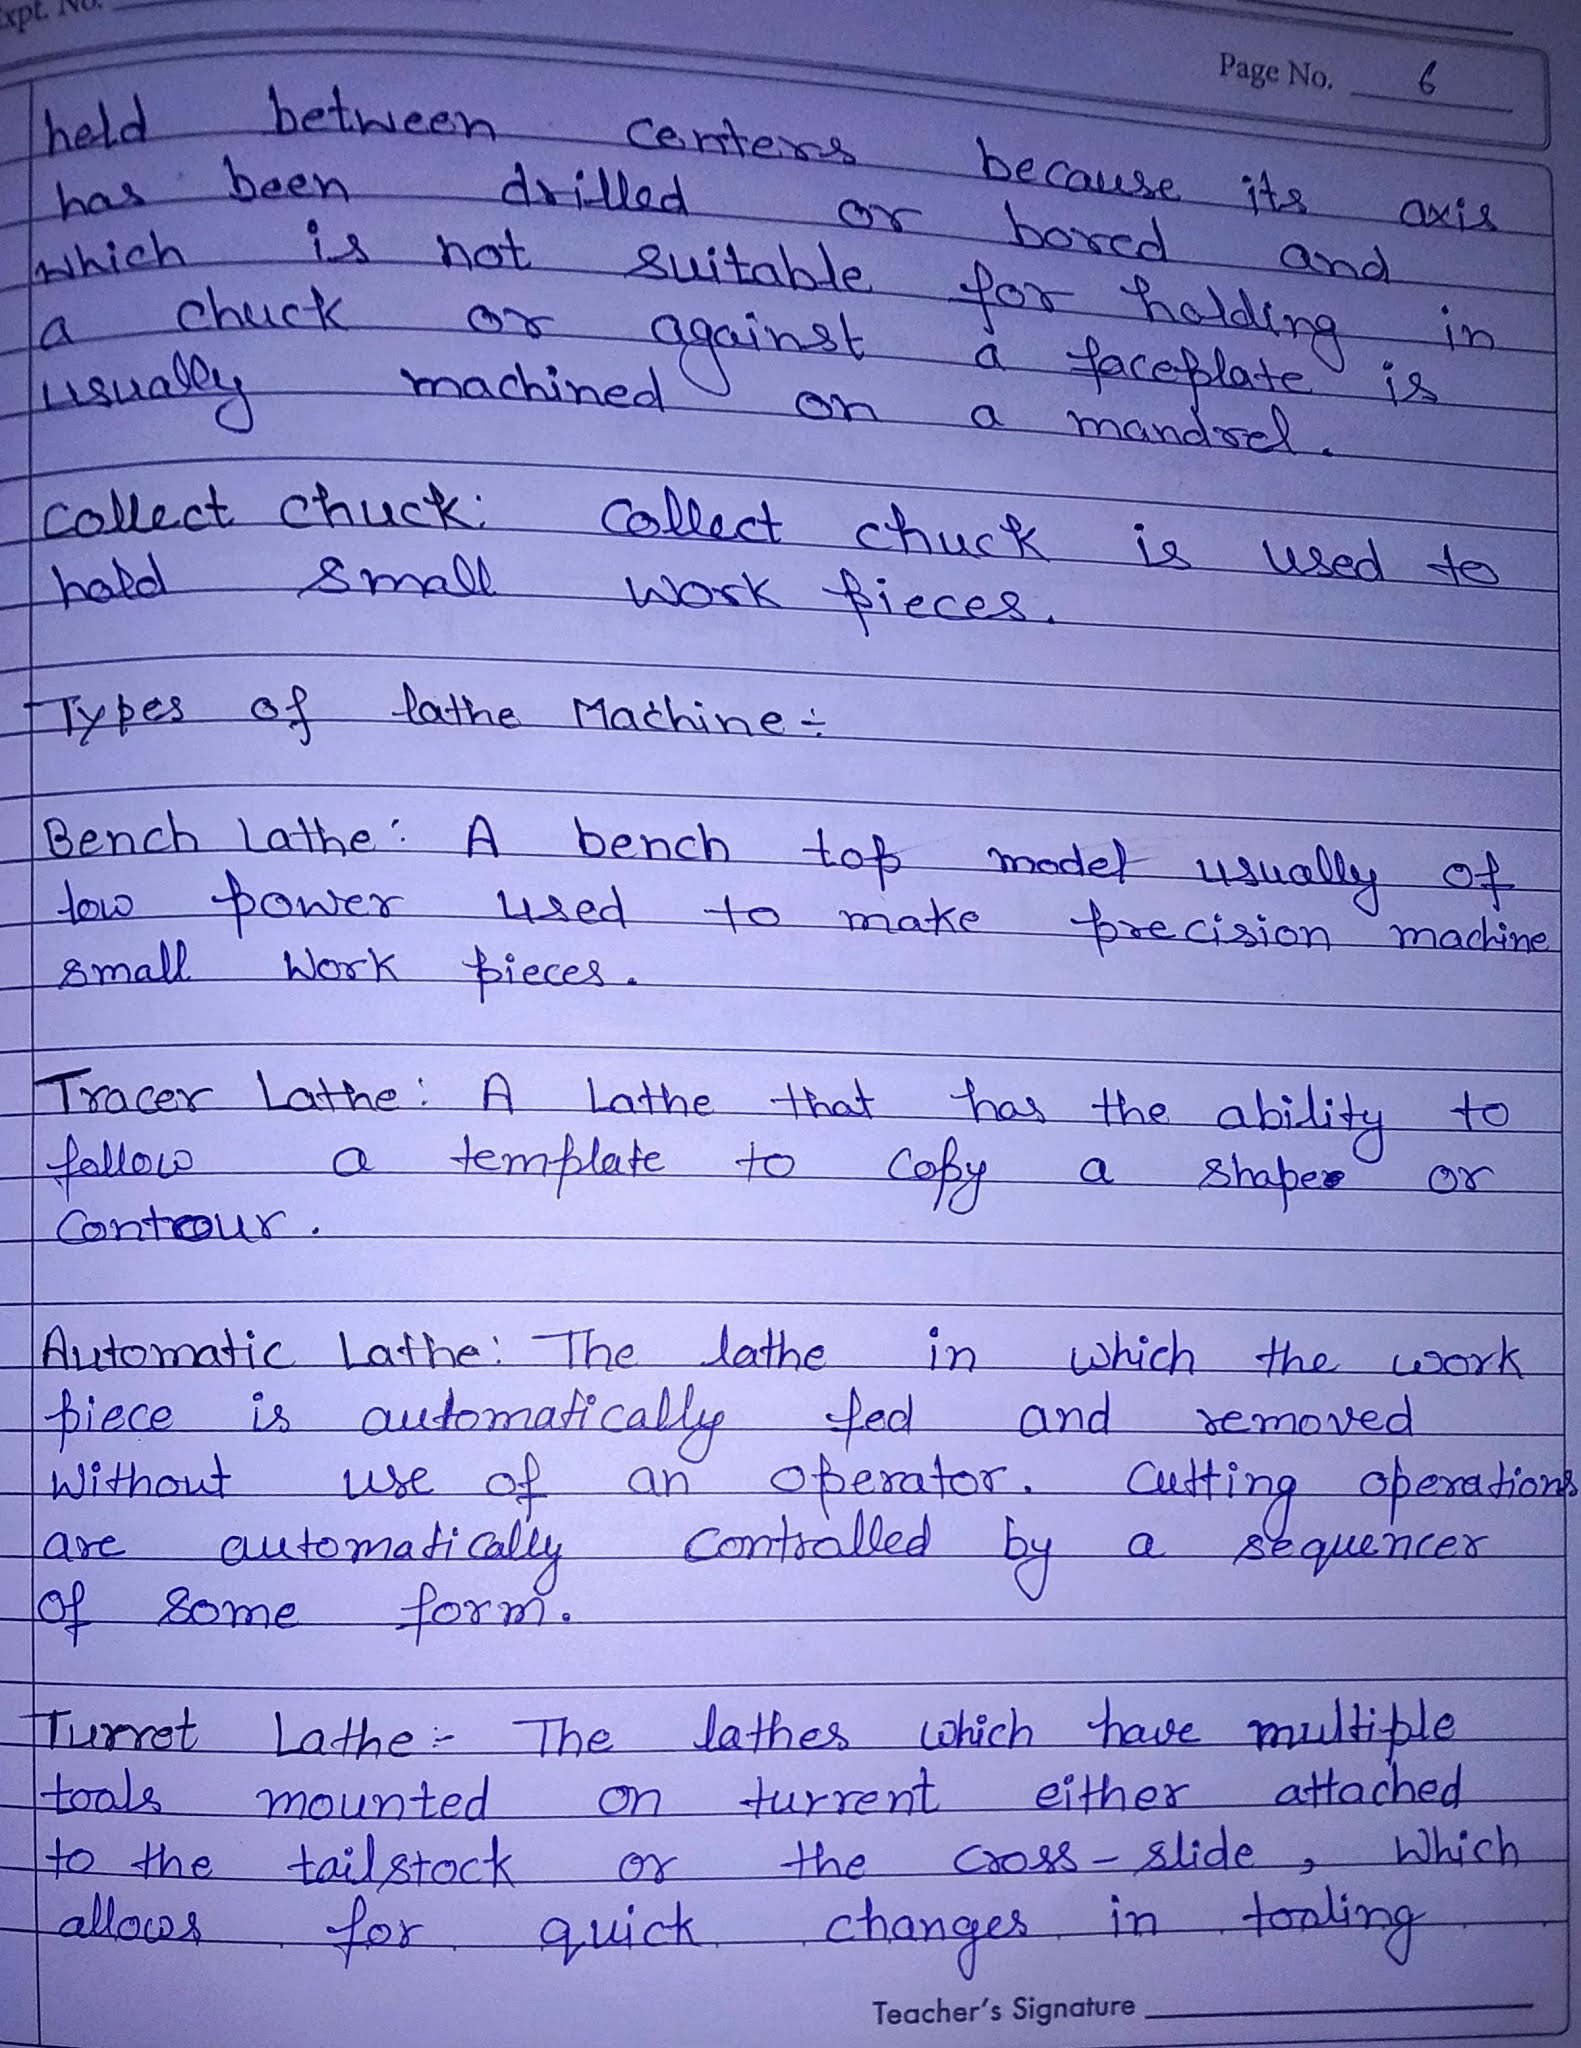 Expt. No.
Page No. 6
held between centers because its axis
has been drilled or bored and
which is not suitable for holding in
a chuck or against a faceplate is
usually machined on a mandrel.
Collect chuck: Collect chuck is used to
hold small work pieces.
Types of lathe Machine:-
Bench Lathe: A bench top model usually of
low power used to make precision machine
small work pieces.
Tracer Lathe: A Lathe that has the ability to
follow a template to copy a shape or
contour.
Automatic Lathe: The lathe in which the work
piece is automatically fed and removed
without use of an operator. Cutting operations
are automatically controlled by a sequencer
of some form.
Turret Lathe:- The lathes which have multiple
tools mounted on turrent either attached
to the tailstock or the cross-slide, which
allows for quick changes in tooling
Teacher's Signature